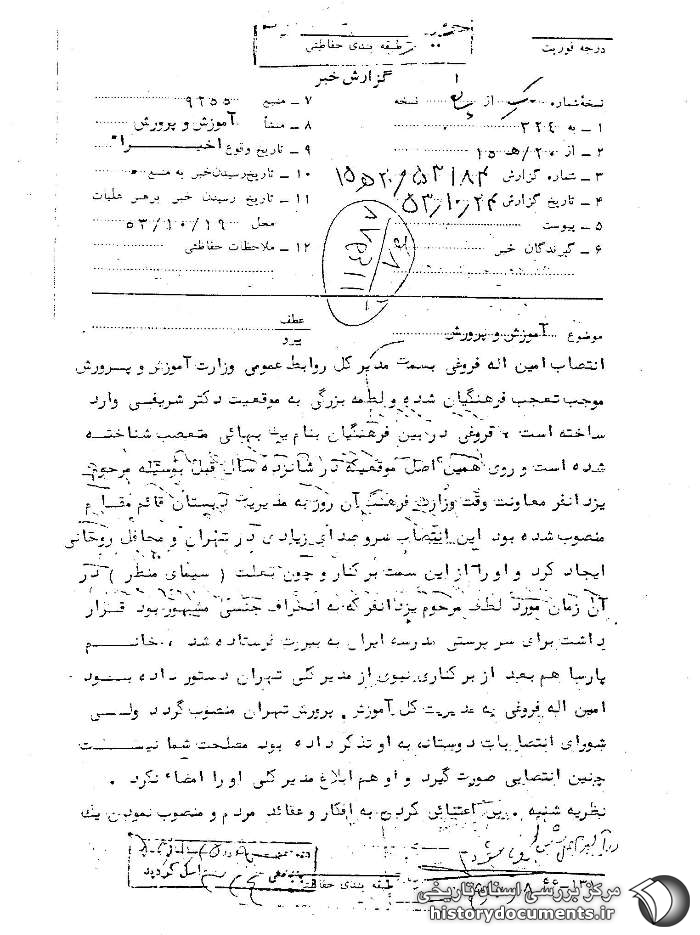 درجه فوریت
طبقه بندی حفاظتی
گزارش خبر
نسخه شماره یک از نسخه
۱ - به ۳۲۴
۲ - از ۲۰/هـ ۱۵
۳ - شماره گزارش
۴ - تاریخ گزارش ۵۳/۱۰/۲۴
۵ - پیوست
۶ - گیرندگان خبر
۷ - منبع ۹۲۵۵
۸ - منشأ آموزش و پرورش
۹ - تاریخ وقوع اخیرا"
۱۰ - تاریخ رسیدن خبر به منبع
۱۱ - تاریخ رسیدن خبر برهبر عملیات
محل ۵۳/۱۰/۱۹
۱۲ - ملاحظات حفاظتی
موضوع آموزش و پرورش
عطف
پیرو
انتصاب امین اله فروغی بسمت مدیر کل روابط عمومی وزارت آموزش و پرورش
موجب تعجب فرهنگیان شده و لطمه بزرگی به موقعیت دکتر شریفی وارد
ساخته است ، فروغی در بین فرهنگیان بنام یک بهائی متعصب شناخته
شده است و روی همین اصل موقعیکه در شانزده سال قبل بوسیله مرحوم
یزدانفر معاونت وقت وزارت فرهنگ آن روز به مدیریت دبستان قائم مقام
منصوب شده بود این انتصاب سر و صدای زیادی در تهران و محافل روحانی
ایجاد کرد و او را از این سمت بر کنار و چون بعلت ( سیمای منظر ) در
آن زمان مورد لطف مرحوم یزدانفر که به انحراف جنسی مشهور بود قرار
داشت برای سر پرستی مدرسه ایران به بیروت فرستاده شد ، خانم
پارسا هم بعد از بر کناری نبوی از مدیر کلی تهران دستور داده بود
امین اله فروغی به مدیریت کل آموزش و پرورش تهران منصوب گردد ولی
شورای انتصابات دوستانه به او تذکر داده بود مصلحت شما نیست
چنین انتصابی صورت گیرد و او هم ابلاغ مدیر کلی او را امضاء نکرد .
نظریه شنبه . بی اعتنائی کردن به افکار و عقائد مردم و منصوب نمودن یک
طبقه بندی حفاظتی
مرکز بررسی اسناد تاریخی
historydocuments.ir